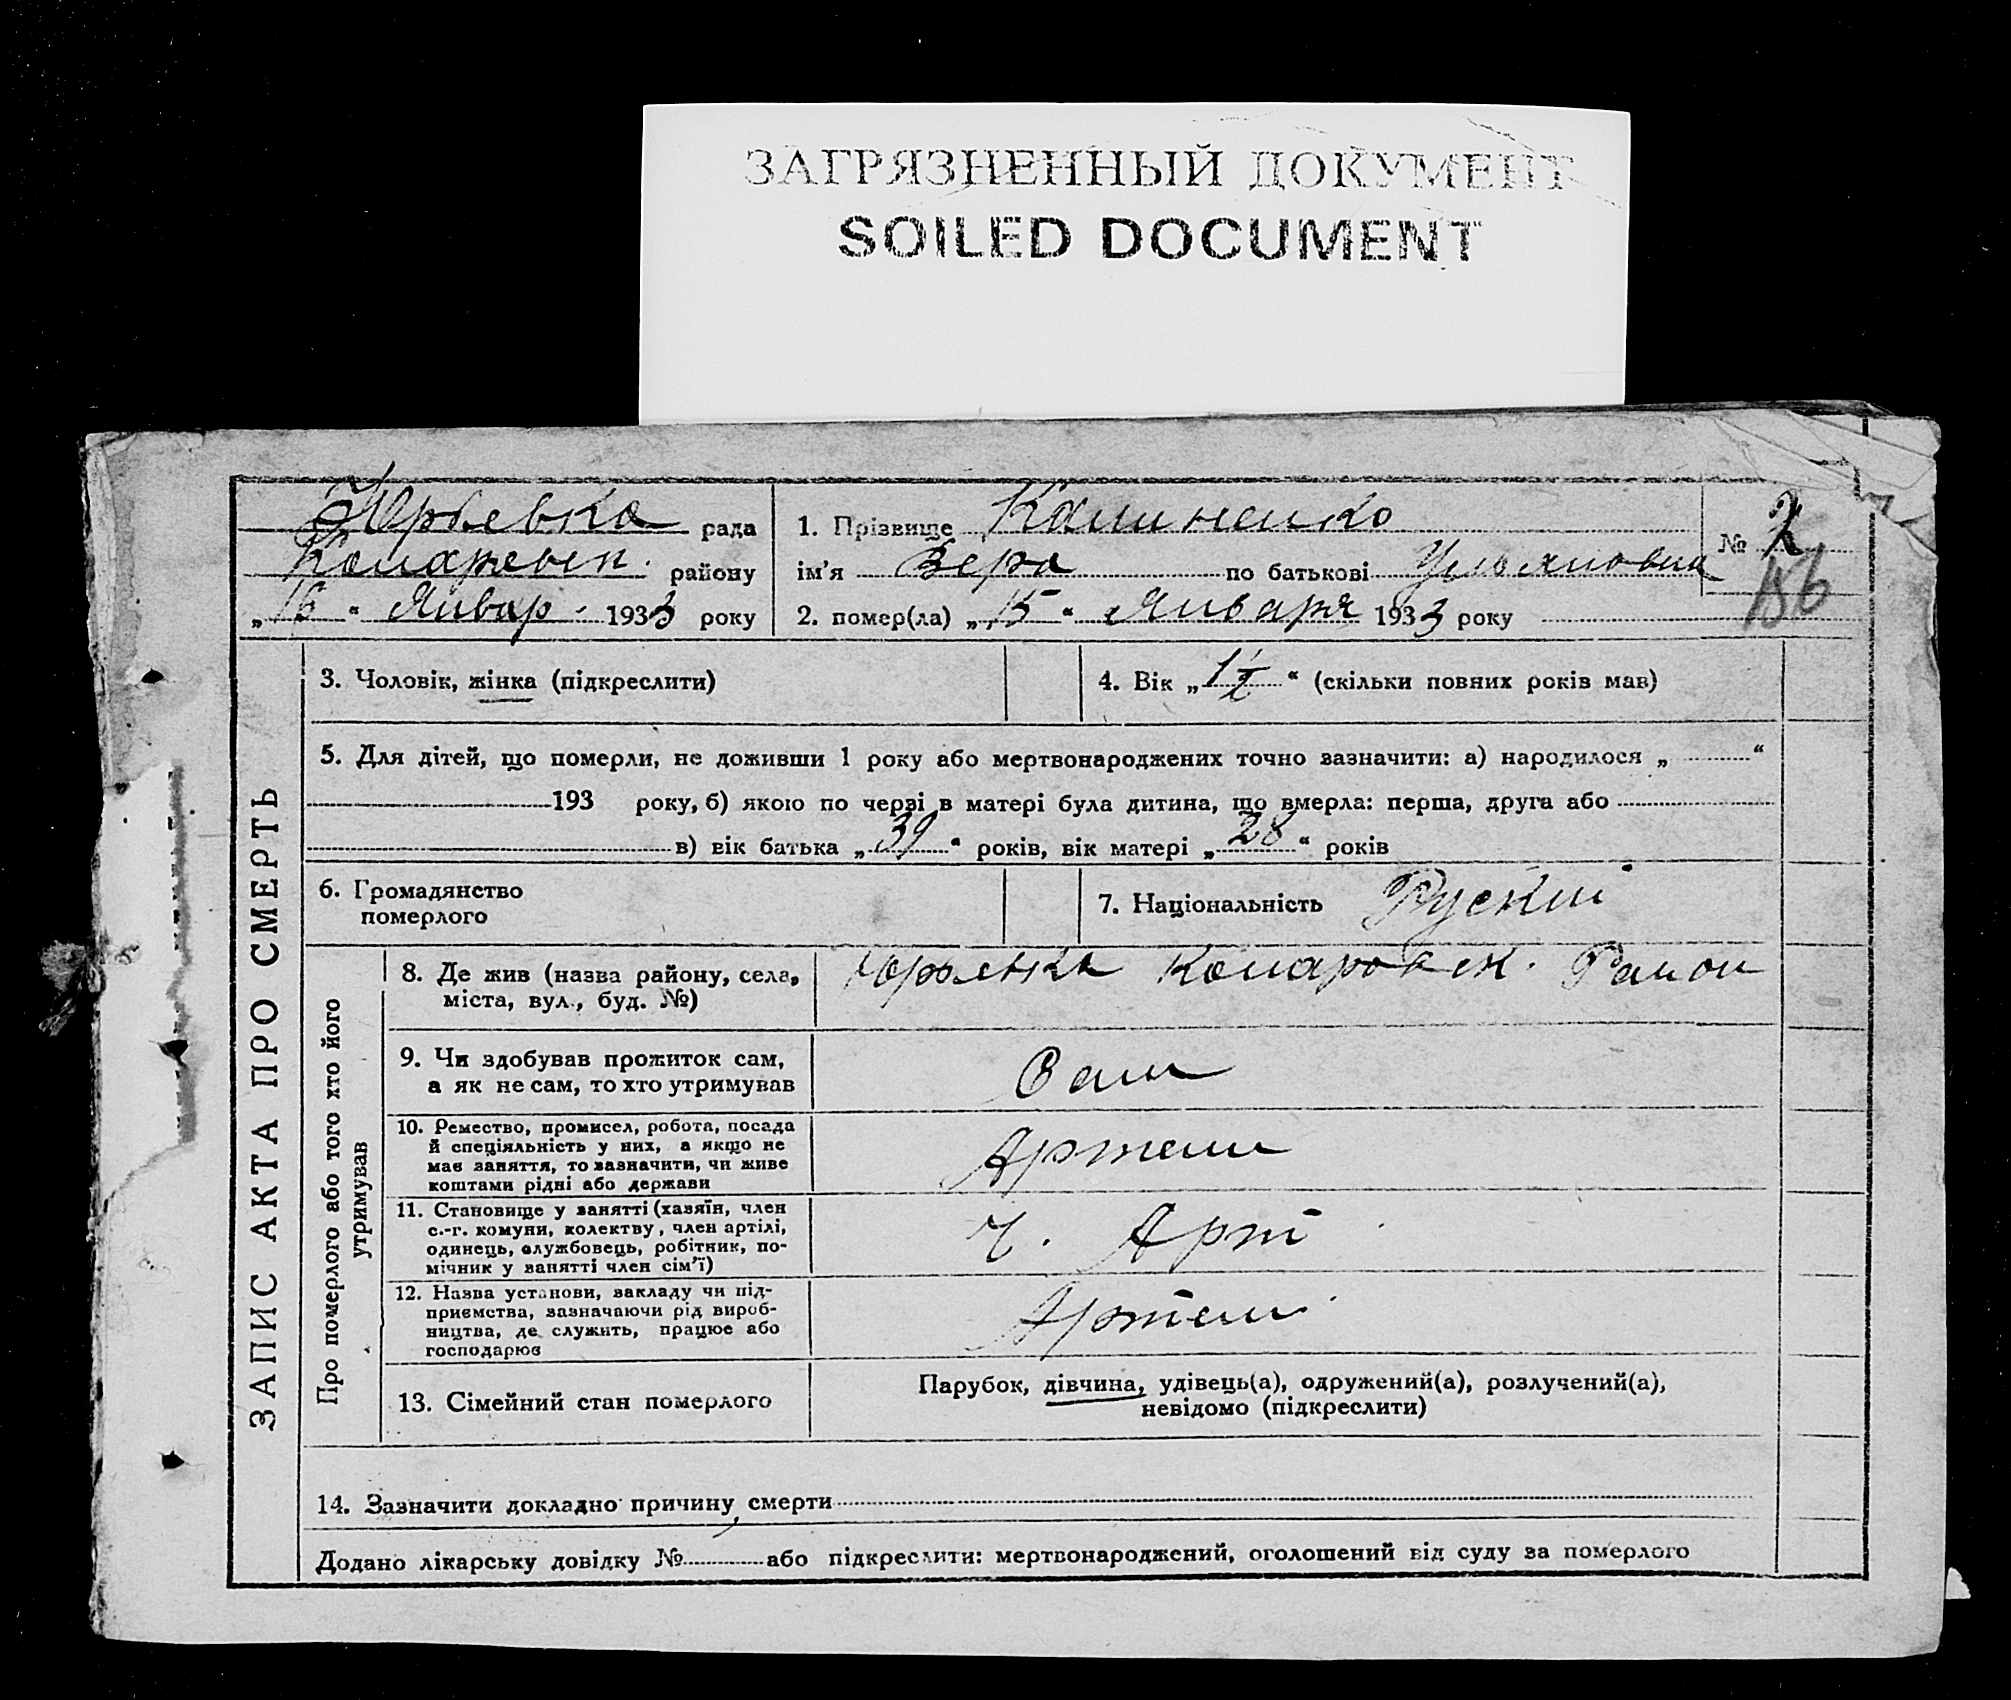 ЗАГРЯЗНЕННЫЙ ДОКУМЕНТ
SOILED DOCUMENT
Юрьевка рада
району
„16“ Январ. 1933 року
1. Прізвище
ім'я Вера по батькові Ульяновна
2. помер(ла) „15“ Января 1933 року
№ 2
186
ЗАПИС АКТА ПРО СМЕРТЬ
3. Чоловік, жінка (підкреслити)
4. Вік „1½“ (скільки повних років мав)
5. Для дітей, що померли, не доживши 1 року або мертвонароджених точно зазначити: а) народилося „ “
193 року, б) якою по черзі в матері була дитина, що вмерла: перша, друга або
в) вік батька „39“ років, вік матері „28“ років
6. Громадянство
померлого
7. Національність Руский
Про померлого або того хто його
утримував
8. Де жив (назва району, села,
міста, вул., буд. №)
Юрьевка Комаровск. Раион
9. Чи здобував прожиток сам,
а як не сам, то хто утримував
10. Ремество, промисел, робота, посада
й спеціяльність у них, а якщо не
має заняття, то зазначити, чи живе
коштами рідні або держави
Артели
11. Становище у занятті (хазяїн, член
с.-г. комуни, колективу, член артілі,
одинець, службовець, робітник, по-
мічник у занятті член сім'ї)
Ч. Арт
12. Назва установи, закладу чи під-
приємства, зазначаючи рід вироб-
ництва, де служить, працює або
господарює
Артели
13. Сімейний стан померлого
Парубок, дівчина, удівець(а), одружений(а), розлучений(а),
невідомо (підкреслити)
14. Зазначити докладно причину смерти
Додано лікарську довідку № або підкреслити: мертвонароджений, оголошений від суду за померлого